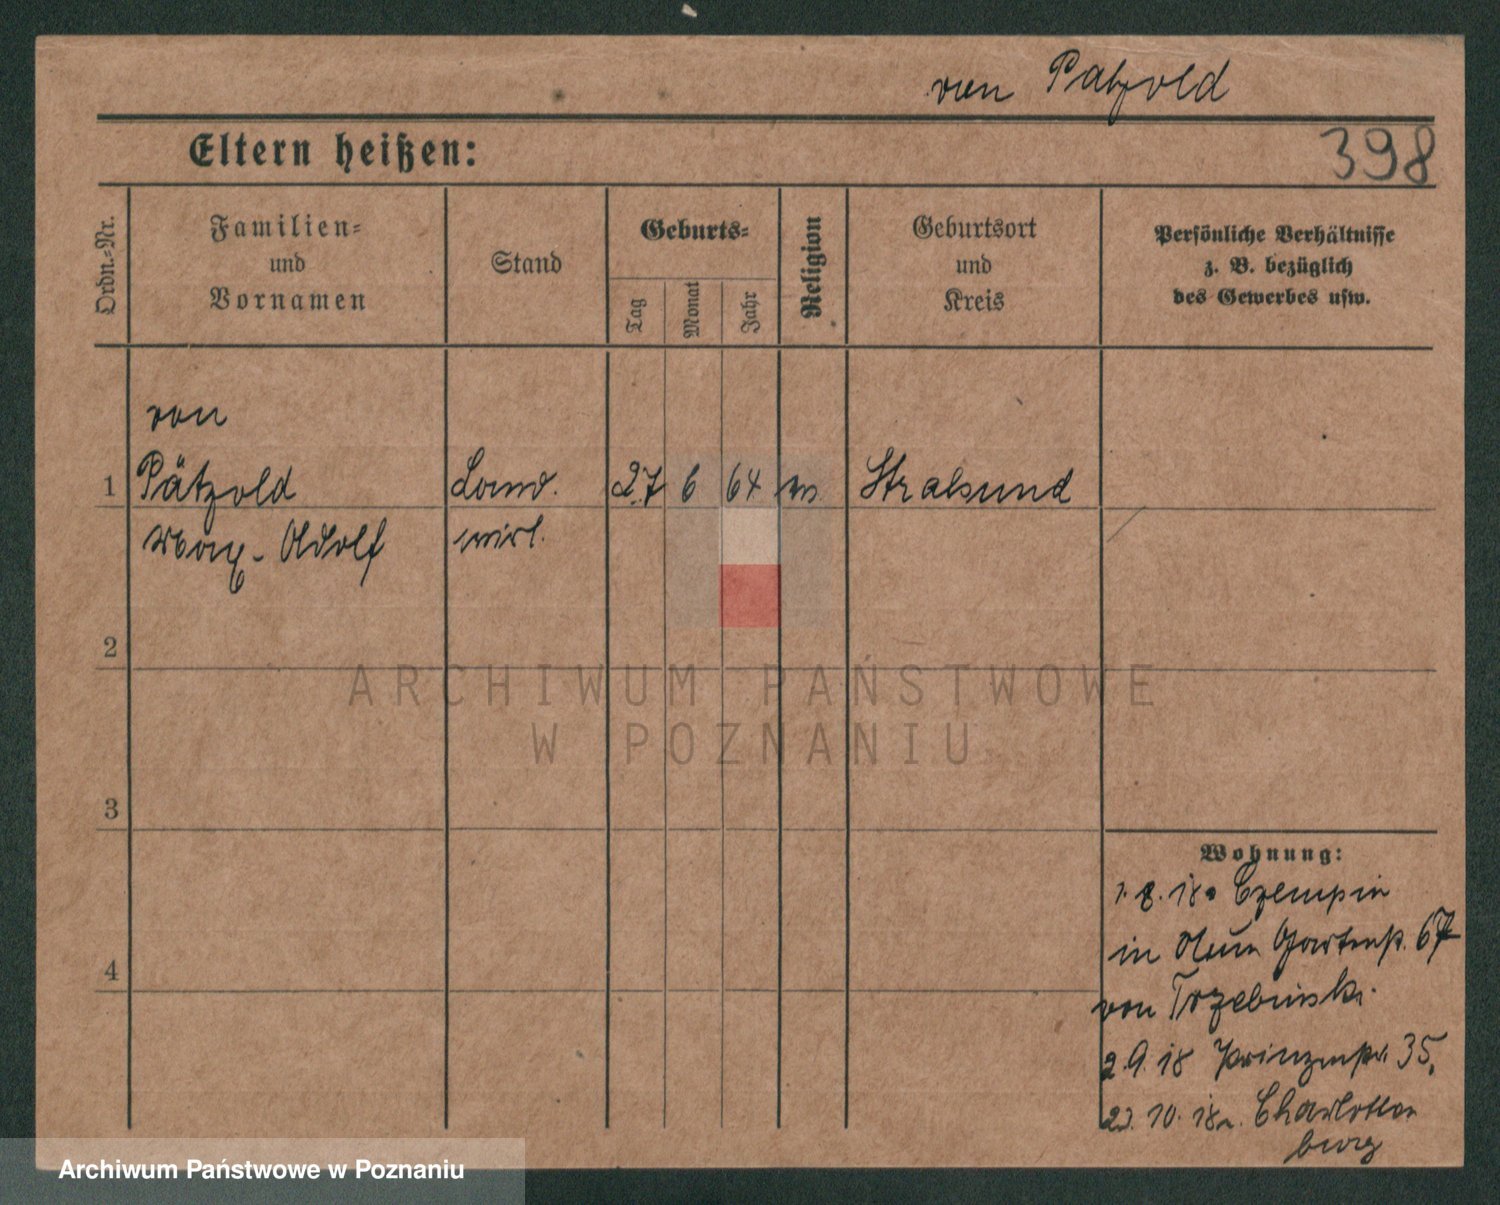 von Pätzold
Eltern heißen:
398
Ordn.-Nr.
Familien-
und
Vornamen
Stand
Geburts-
Tag
Monat
Jahr
Religion
Geburtsort
und
Kreis
Persönliche Verhältnisse
z. B. bezüglich
des Gewerbes usw.
von
1 Pätzold Land. 27 6 64 Stralsund
Max-Adolf wirt.
2
3
4
Wohnung:
1.8.18 Czempin
in Gartenstr. 67
von Trzebinski.
2.9.18 Prinzenstr. 35.
10.18 Charlotten
burg
ARCHIWUM PAŃSTWOWE
W POZNANIU
Archiwum Państwowe w Poznaniu